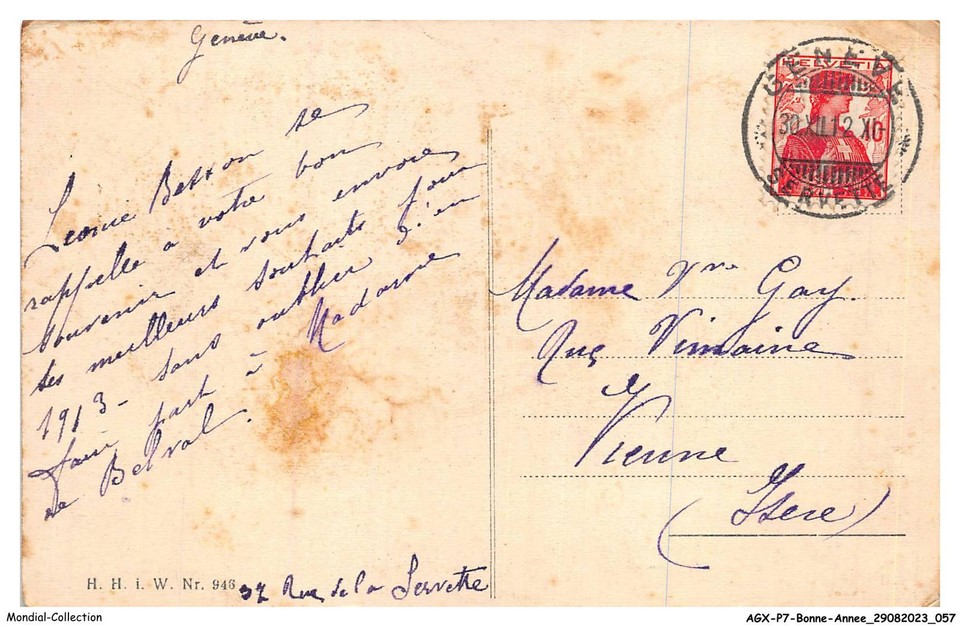 Genève.
Leonie Besson se
rappelle à votre bon
souvenir et vous envoie
ses meilleurs souhaits pour
1913 - sans oublier d'en
faire part à Madame
de Belval.
H. H. i. W. Nr. 946
37 Rue de la Servette
GENÈVE
HELVETIA
30.XII.12.XO
SERVETTE
Madame Vve Gay.
Rue Vimaine
Vienne
(Isere)
Mondial-Collection
AGX-P7-Bonne-Annee_29082023_057